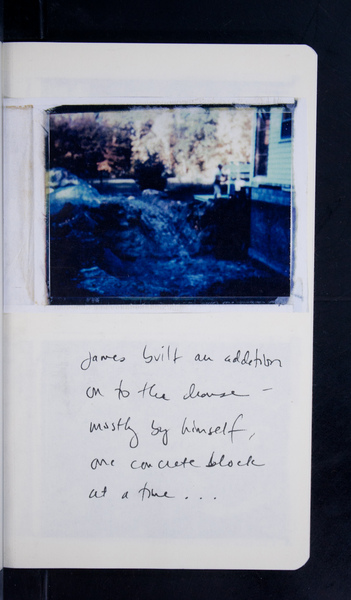 James built an addition
on to the house –
mostly by himself,
one concrete block
at a time . . .